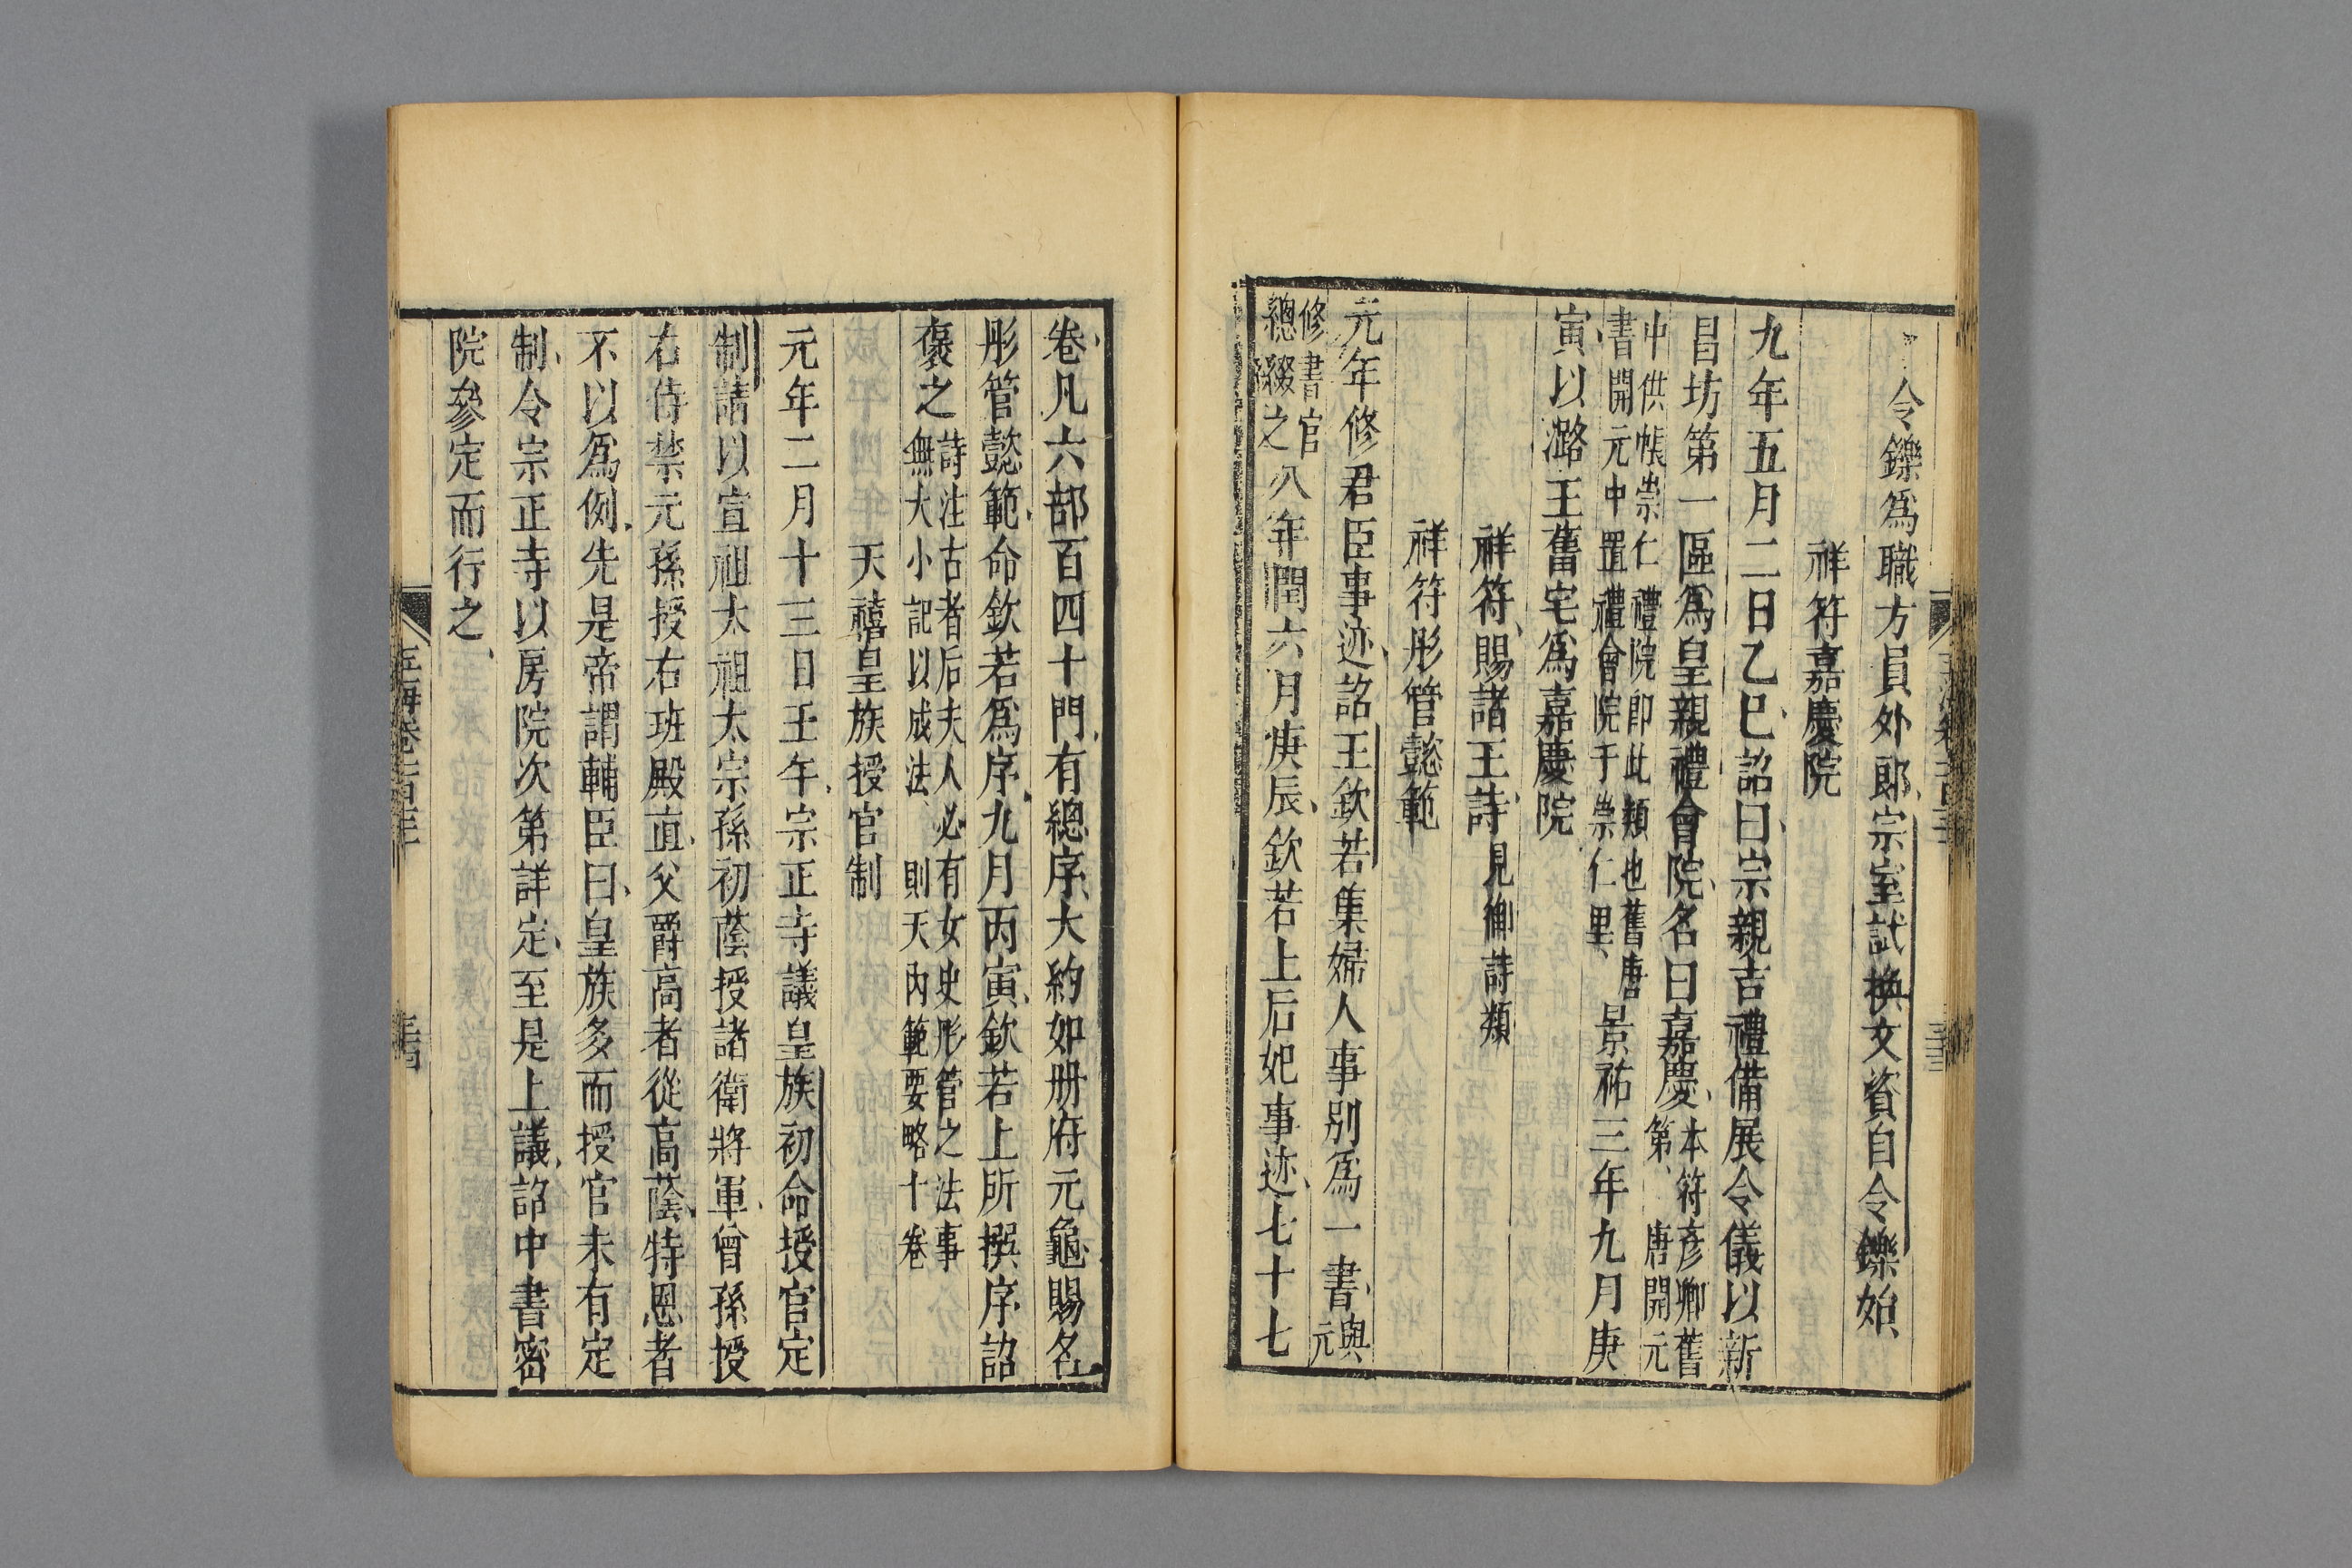 令鑠爲職方員外郎宗室試換文資自令鑠始
祥符嘉慶院
九年五月二日乙巳詔曰宗親吉禮備展令儀以新
昌坊第一區爲皇親禮會院名曰嘉慶本符彥卿舊第唐開元
中供帳崇仁禮院即此類也舊唐書開元中置禮會院于崇仁里景祐三年九月庚
寅以潞王舊宅爲嘉慶院
祥符賜諸王詩見御詩類
祥符彤管懿範
元年修君臣事迹詔王欽若集婦人事別爲一書與元
修書官總綴之八年閏六月庚辰欽若上后妃事迹七十七
卷凡六部百四十門有總序大約如册府元龜賜名
彤管懿範命欽若爲序九月丙寅欽若上所撰序詔
褒之詩注古者后夫人必有女史彤管之法事無大小記以成法則天內範要略十卷
天禧皇族授官制
元年二月十三日壬午宗正寺議皇族初命授官定
制請以宣祖太祖太宗孫初蔭授諸衛將軍曾孫授
右侍禁元孫授右班殿直父爵高者從高蔭特恩者
不以爲例先是帝謂輔臣曰皇族多而授官未有定
制令宗正寺以房院次第詳定至是上議詔中書密
院參定而行之